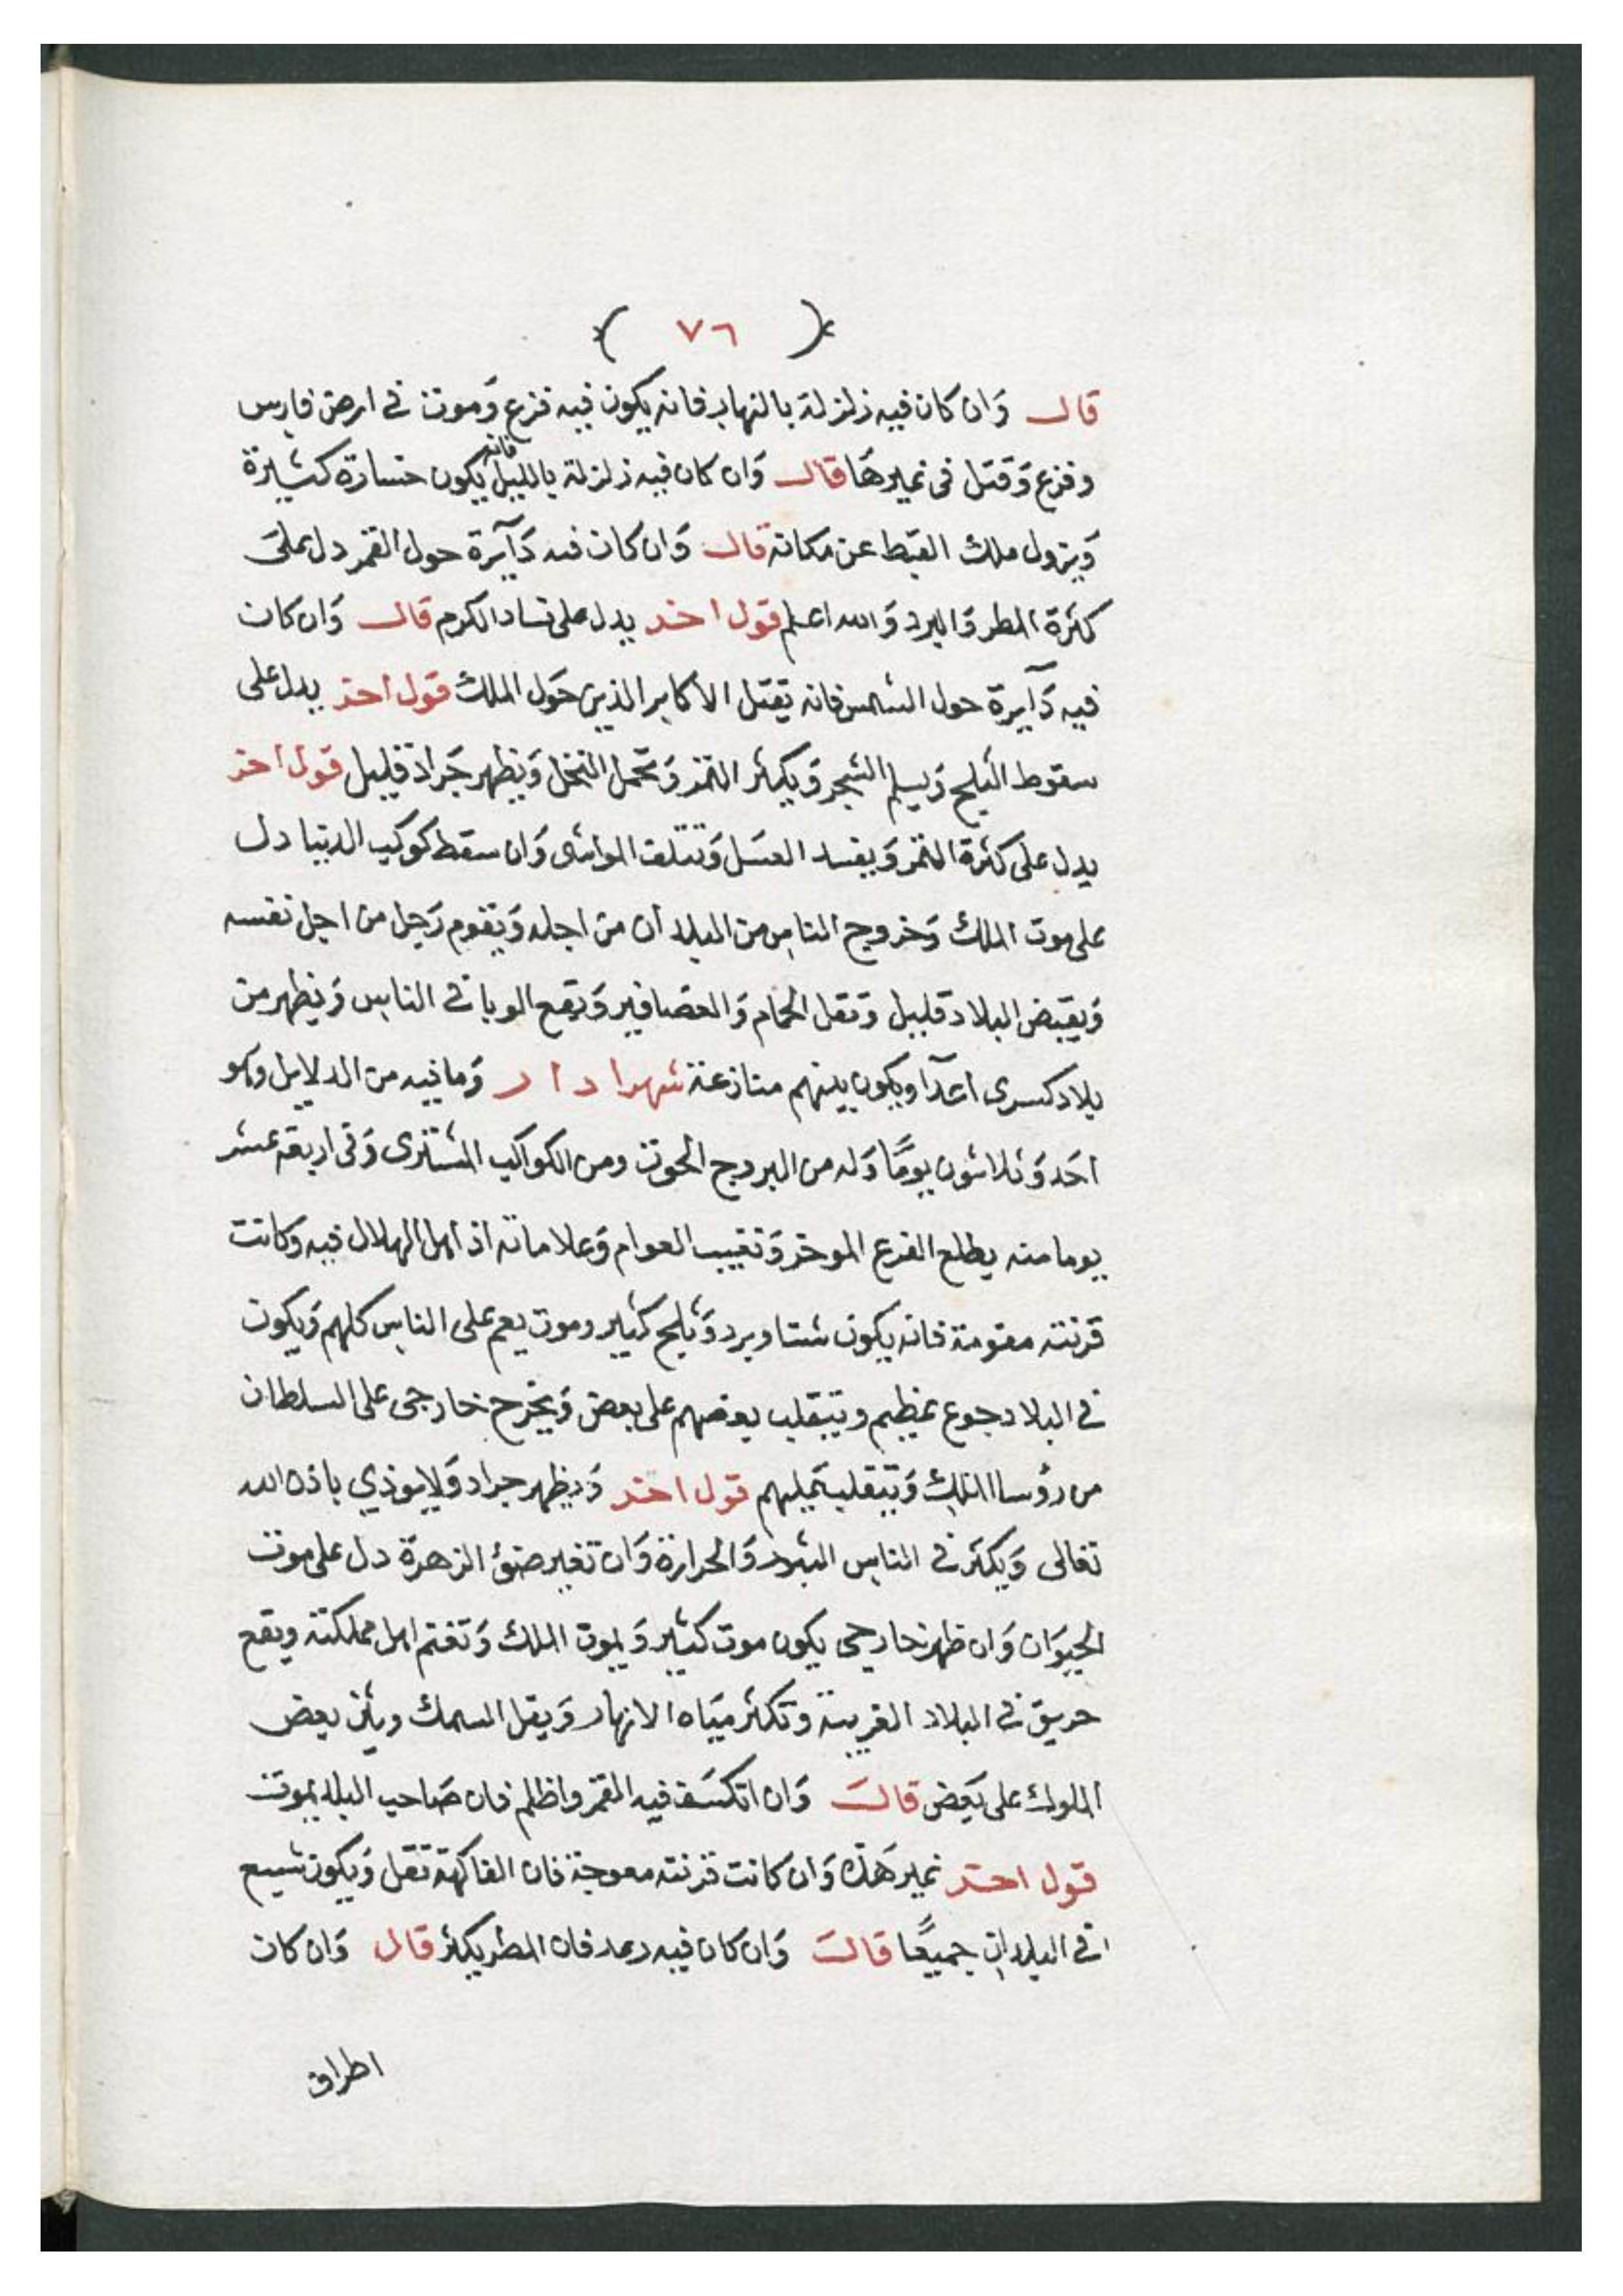 ( ٧٦ )
قال وَان كان فيه زلزلة بالنهار فانه يكون فيه فزع وَموت في ارض فارس
وفزع وَقتل في غيرهَا قال وَان كان فيه زلزلة بالليل فانه يكون خسارة كثيرة
وَيزول ملك القبط عن مكانه قال وَان كان فيه دَآيرة حول القمر دل على
كثرة المطر وَالبرد وَالله اعلم قول اخر يدل على فساد الكرم قال وَان كان
فيه دَآيرة حول الشمس فانه يقتل الاكابر الذين حَول الملك قول اخر يدل على
سقوط الثلج وَيسلم الشجر وَيكثر التمر وَتحمل النخل وَيظهر جَراد قليل قول اخر
يدل على كثرة التمر وَيفسد العسَل وَتتلف المواشي وَان سقط كوكب الدنيا دل
على موت الملك وَخروج الناس من البلد ان من اجله وَيقوم رَجل من اجل نفسه
وَيقبض البلاد قليل وَتقل الحمام وَالعصَافير وَيقع الوبا في الناس وَيظهر من
بلاد كسرى اعدآ ويكون بينهم منازعة شهرا د ا ر وَما فيه من الدلايل وهو
احَد وَثلاثون يومًا وَله من البروج الحوت ومن الكواكب المشترى وَفي اربعة عشر
يوما منه يطلع الفرع الموخر وَتغيب العوام وَعلاماته اذ اهل الهلال فيه وكانت
قرنته مقومة فانه يكون شتا وبرد وَثلج كثير وموت يعم على الناس كلهم وَيكون
في البلاد جوع عظيم ويتقلب بعضهم على بعض وَيخرج خارجى على السلطان
من رؤسا الملك وَيتقلب عَليهم قول اخر وَيظهر جراد وَلايوذي باذن الله
تعالى وَيكثر في الناس البرد وَالحرارة وَان تغير ضؤ الزهرة دل على موت
الحيوَان وَان ظهر خارجى يكون موت كثير وَيموت الملك وَتغتم اهل مملكته ويقع
حريق في البلاد الغريبة وتكثر ميَاه الانهار وَيقل السمك ويثب بعض
الملوك على بَعض قال وَان انكسَف فيه القمر واظلم فان صَاحب البلد يموت
قول اخر غير هَذه وَان كانت قرنته معوجة فان الفاكهة تقل وَيكون شبع
في البلدان جميعًا قال وَان كان فيه رعد فان المطر يكثر قال وَان كان
اطراف